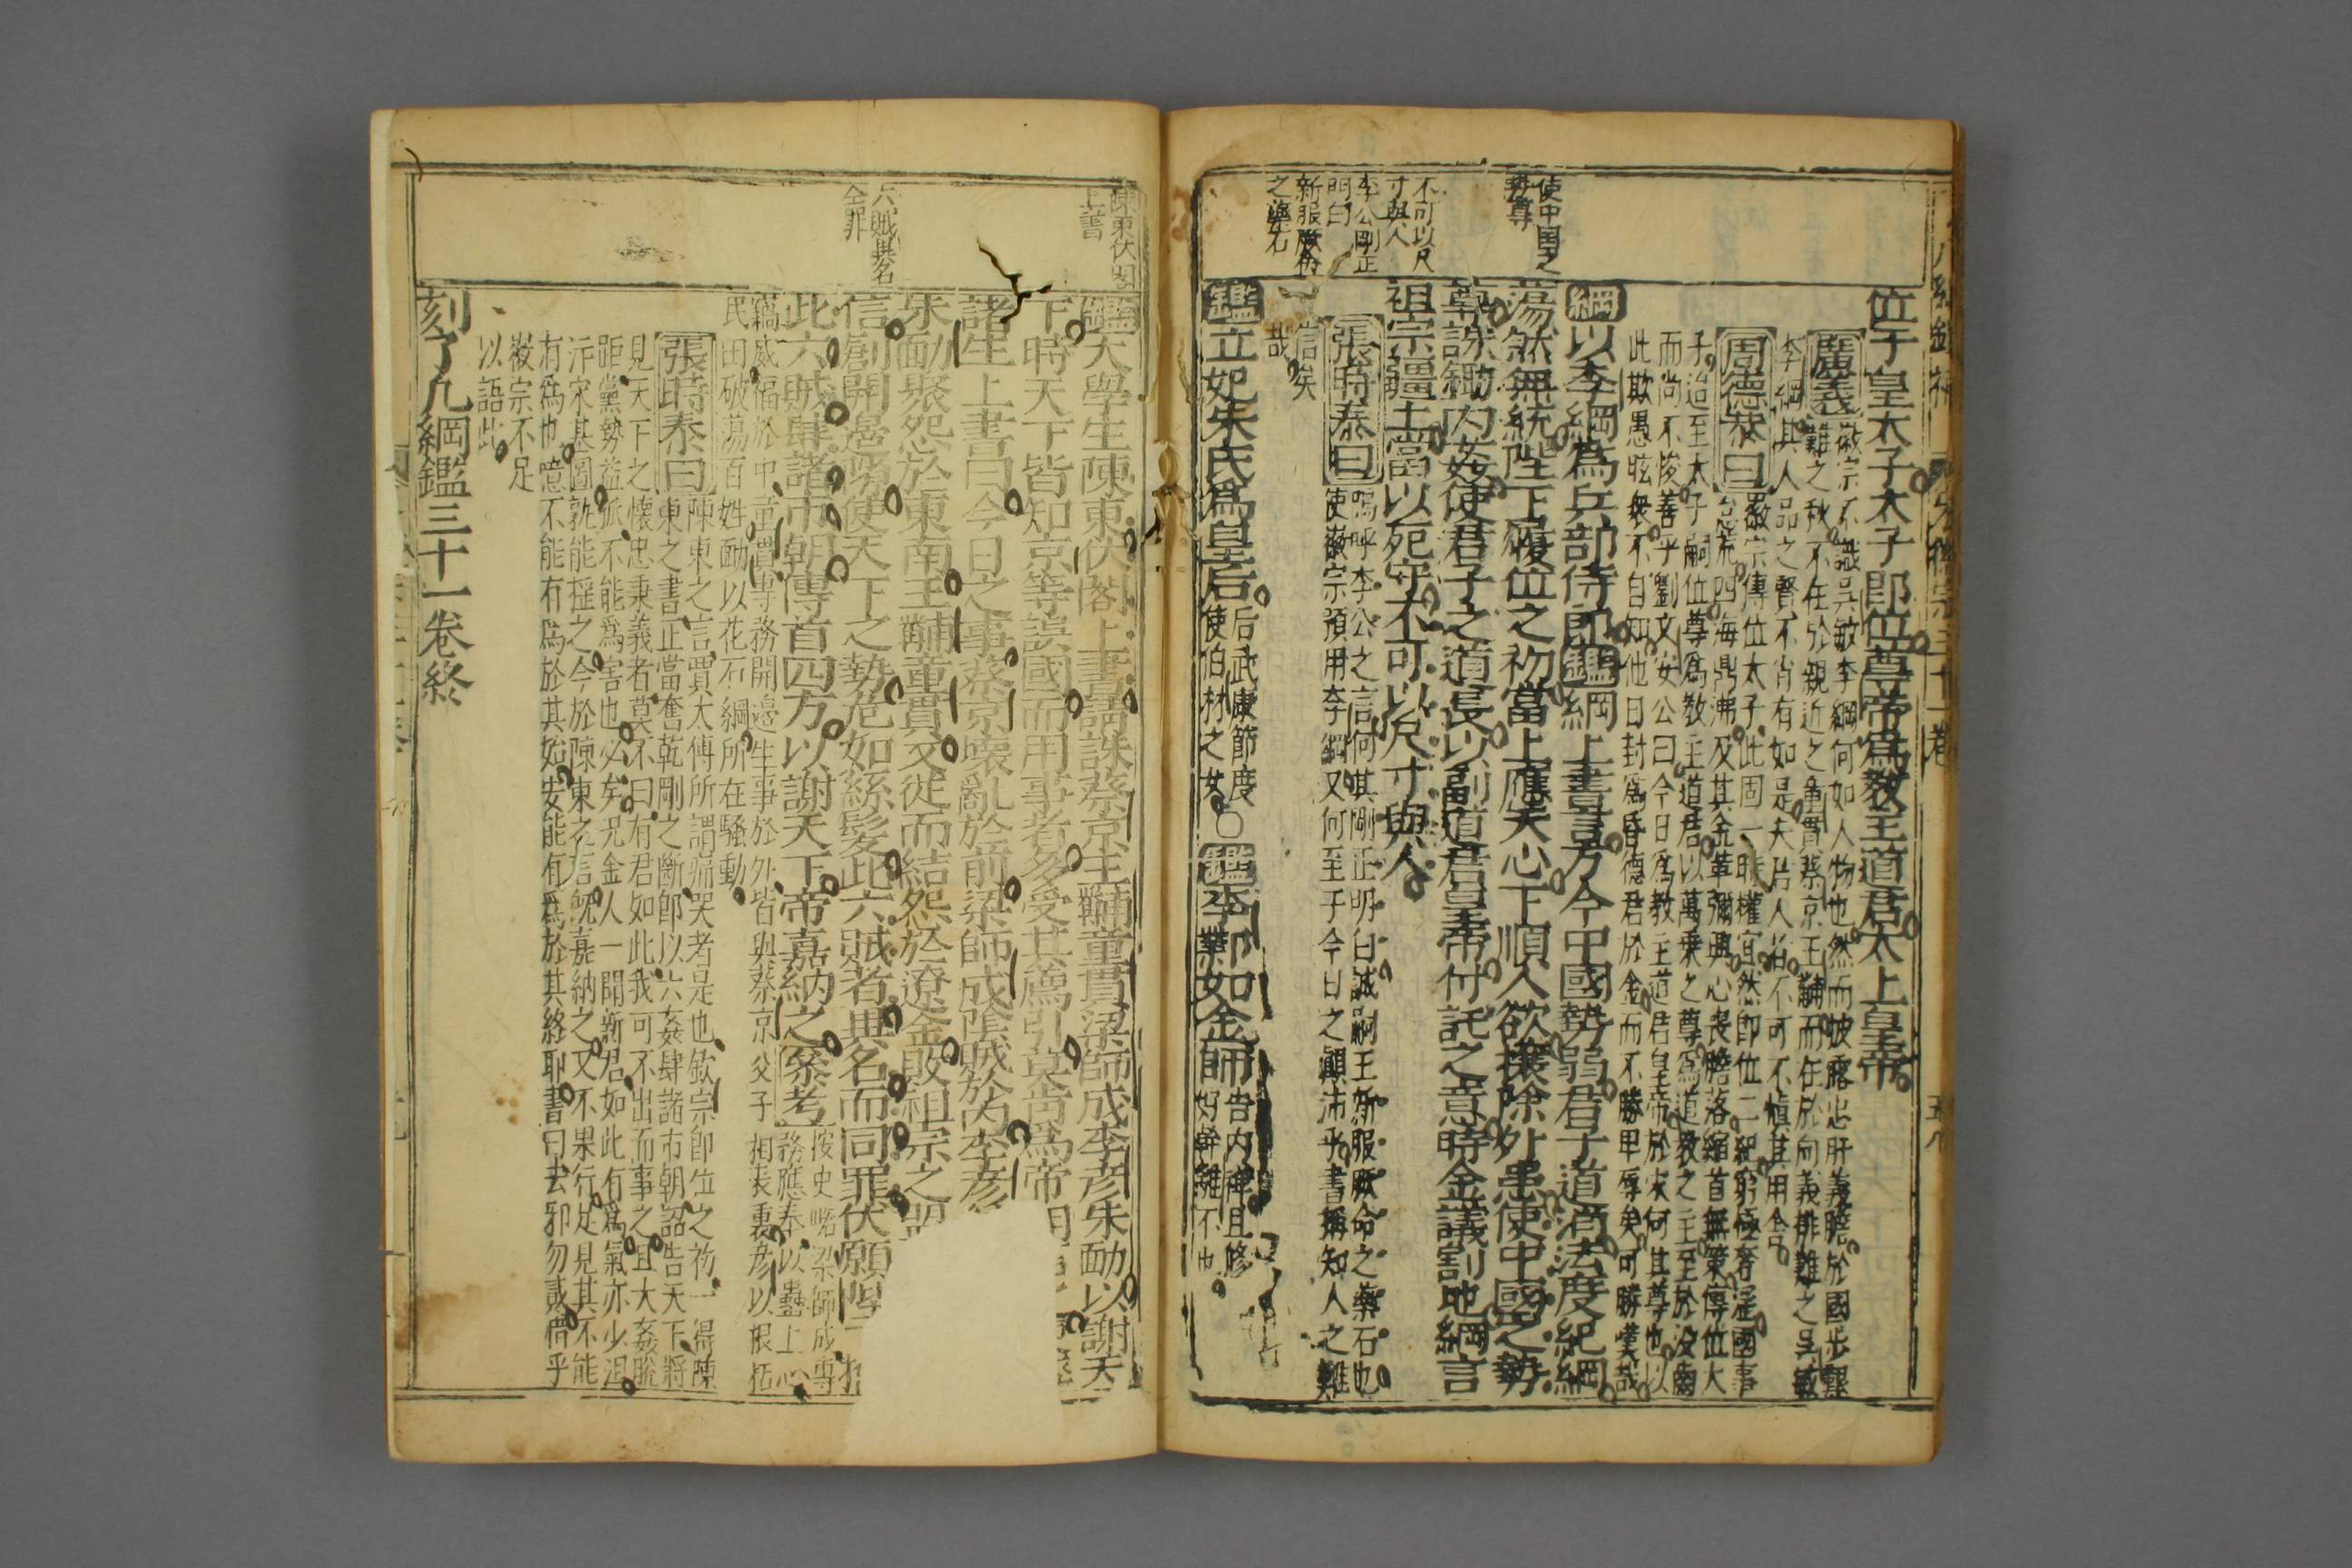 使中国之
勢尊
不可以尺
寸與人
李公剛正
明白
新服厥命
之藥石
位于皇太子太子即位尊帝爲教主道君太上皇帝
廣義
徽宗不識吳敏李綱何如人物也然而披露忠肝義膽於國步艱
難之秋不在於親近之童貫蔡京王黼而在於向義排難之吳敏
李綱其人品之賢不肖有如是夫片人者不可不愼其用舍
周德恭曰
徽宗傳位太子此固一時權宜然即位二紀窮極奢淫國事
怠荒四海鼎沸及其金革彌興心喪膽落縮首無策傳位太
子迨至太子嗣位尊爲教主道君以萬乘之尊爲道教之主至於没齒
而尚不悛善乎劉文安公曰今日爲教主道君皇帝於宋何其尊也以
此欺愚昡衆不自知他日封爲昏德君於金而不勝卑辱矣可勝嘆哉
綱以李綱爲兵部侍郎鑑綱上書言方今中國勢弱君子道消法度紀綱
蕩然無統陛下履位之初當上應天心下順人欲攘除外患使中國之勢
尊誅鋤内姦使君子之道長以副道君皇帝付託之意時金議割地綱言
祖宗疆土當以死守不可以尺寸與人
張時泰曰
嗚呼李公之言何其剛正明白誠嗣王新服厥命之藥石也
使徽宗預用李綱又何至于今日之顚沛乎書稱知人之難
信矣
哉
鑑立妃朱氏爲皇后
后武康節度
使伯材之女
○鑑李鄴如金師
告内禅且修
好幹離不也
陳東伏閣
上書
六賊異名
全罪
鑑大學生陳東伏閣上書請誅蔡京王黼童貫梁師成李彦朱勔以謝天
下時天下皆知京等誤國而用事者多受其薦引莫肯爲帝明言
諸生上書曰今日之事蔡京壞亂於前梁師成陰賊於内李彦
朱勔聚怨於東南王黼童貫又從而結怨於遼金敗祖宗之盟
信創開邊隙使天下之勢危如絲髮此六賊者異名而同罪伏願陛
此六賊肆諸市朝傳首四方以謝天下帝嘉納之
叅考
按史略梁師成專
務應奉以蠱上心
竊威福於中童貫專務開邊生事於外皆與蔡京父子相表裏彦以根括
民田破蕩百姓勔以花石綱所在騷動
張時泰曰
陳東之言賈太傅所謂痛哭者是也欽宗即位之初一得陳
東之書正當奮乾剛之斷即以六姦肆諸市朝詔告天下將
見天下之懷忠秉義者莫不曰有君如此我可不出而事之且大姦脱
距黨勢益孤不能爲害也必矣况金人一聞新君如此有爲氣亦少沮
泝宋基圖孰能摧之今於陳東之言既嘉納之又不果行足見其不能
有爲也噫不能有爲於其始安能有爲於其終耶書曰去邪勿貳惜乎
徽宗不足
以語此
刻了凡綱鑑三十一卷終